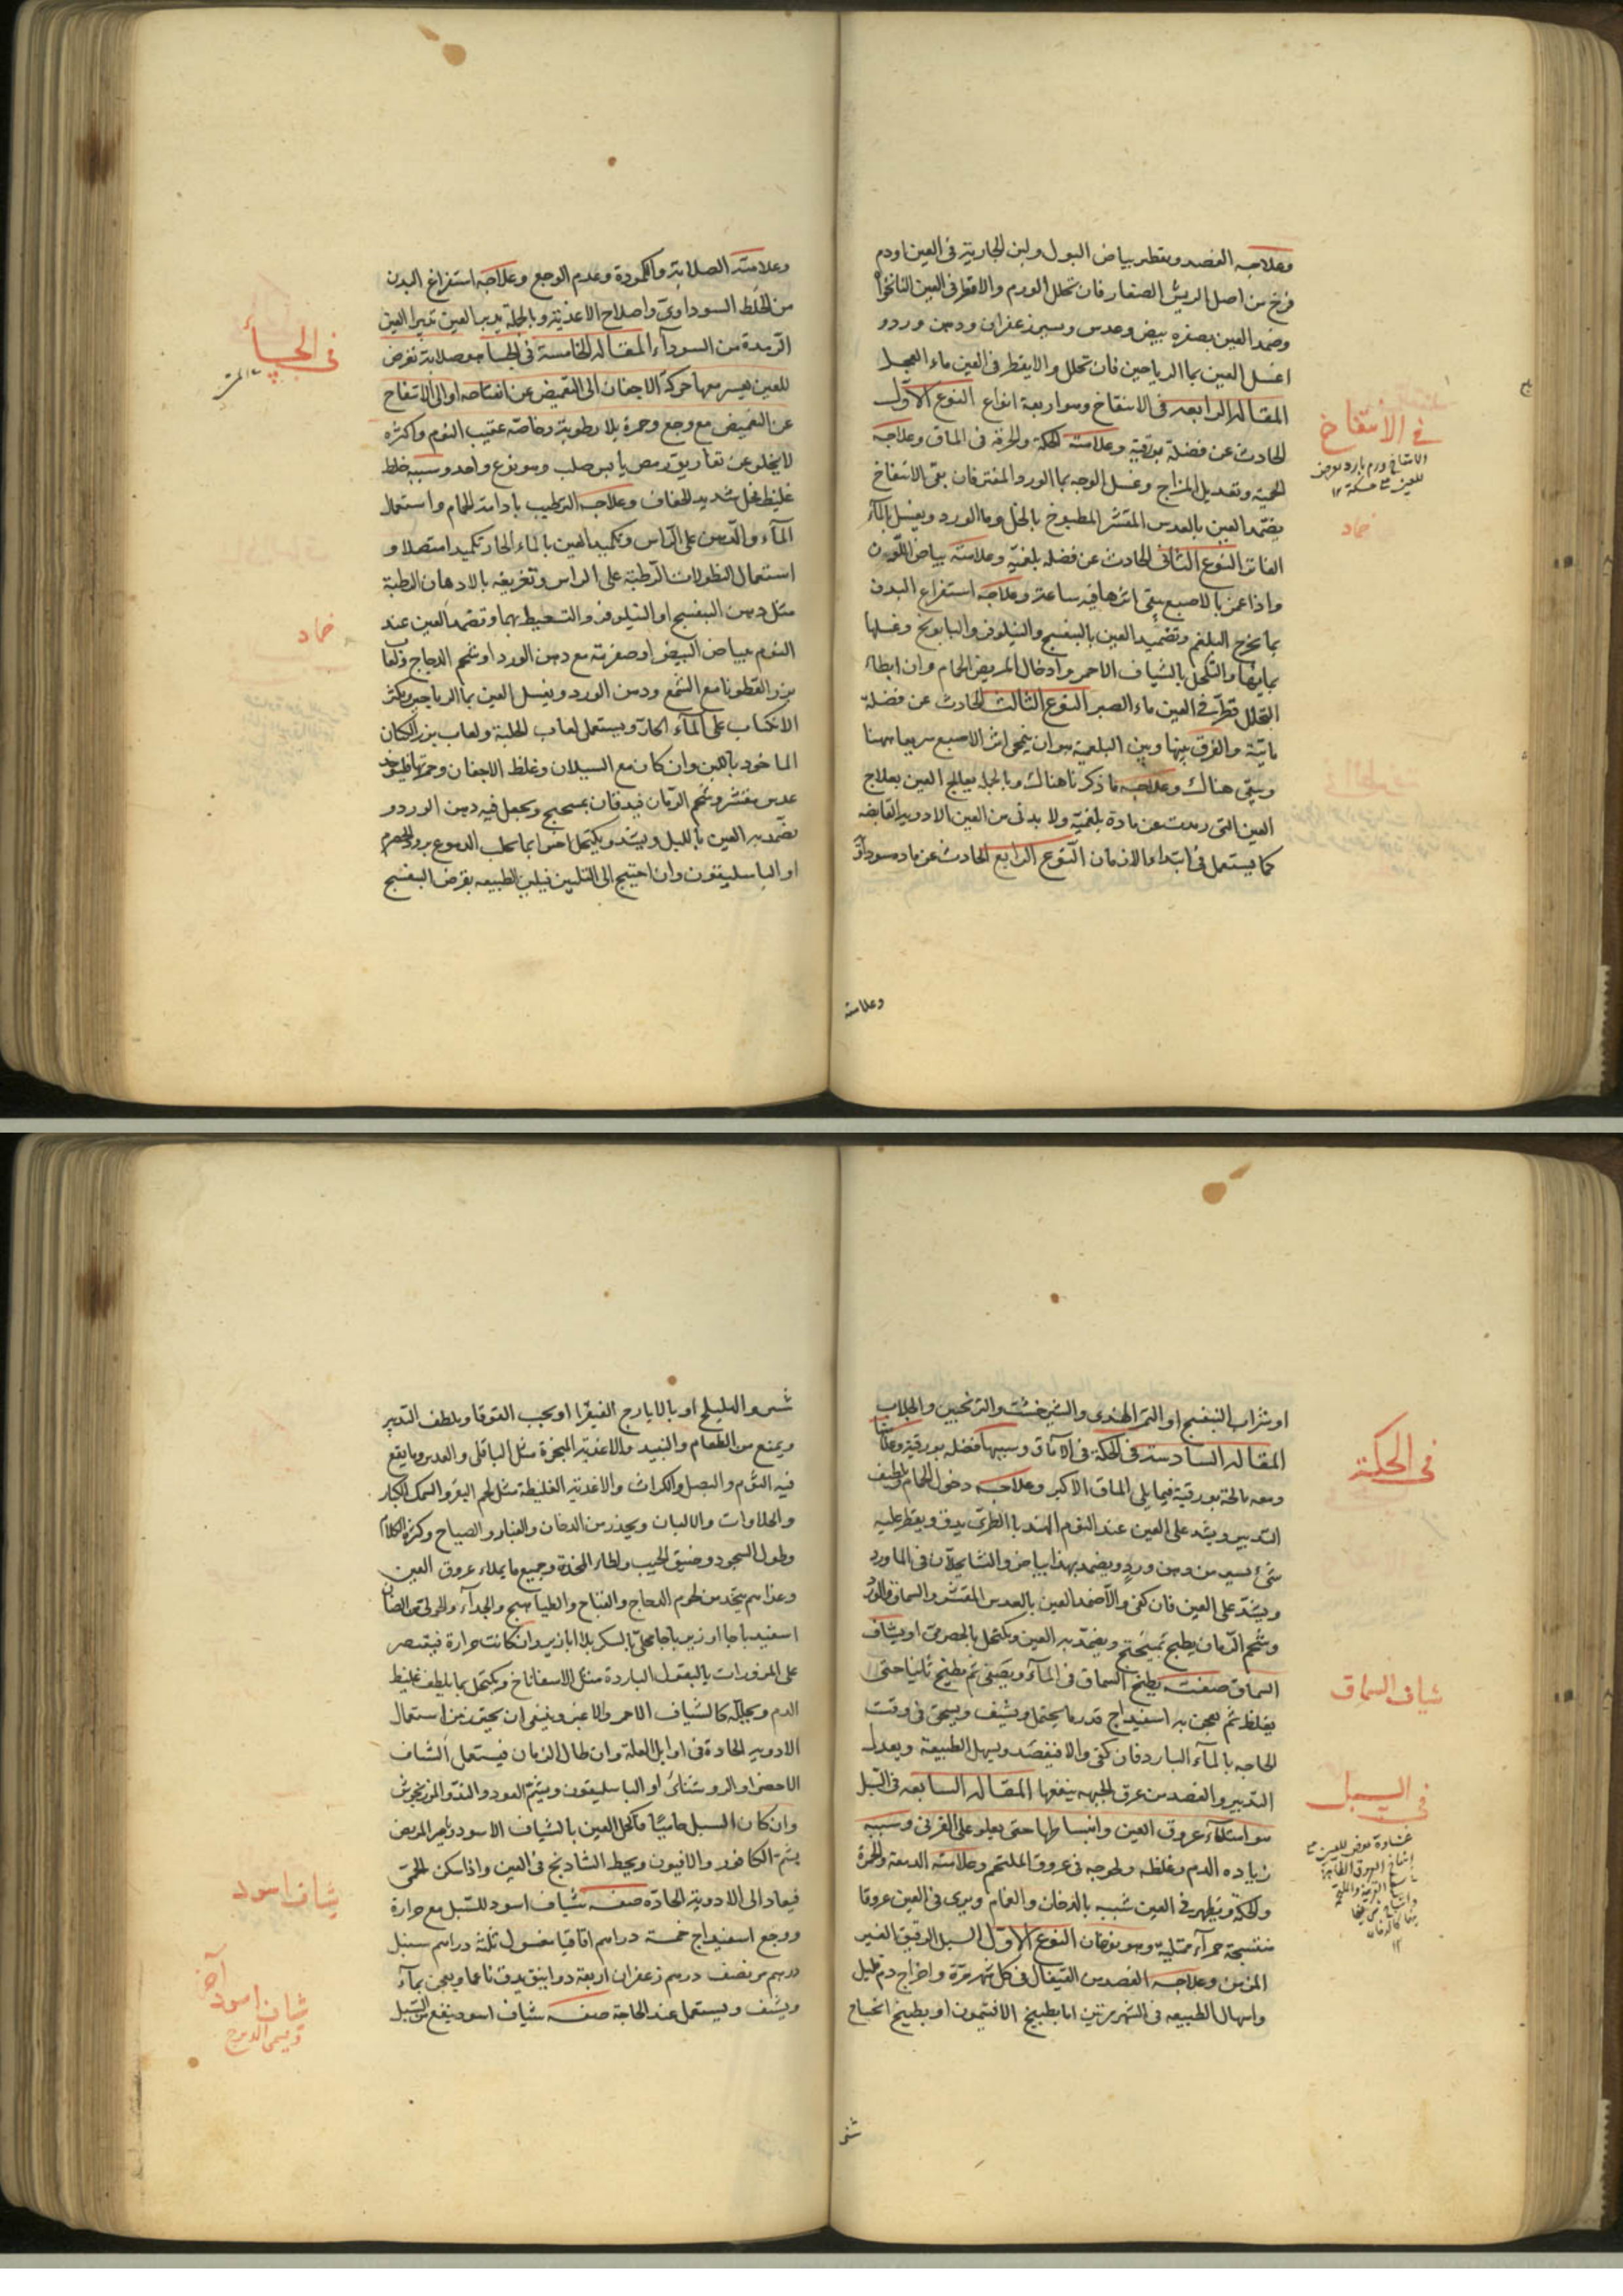 وعلاجه الفصد ويقطر بياض البول ولبن الجارية فى العين او دم
فرخ من اصل الريش الصغار فان تحلل الورم والا قطر فى العين النانخواه
وضمد العين بصفره بيض وعدس ويسير زعفران ودهن ورد و
اغسل العين بماء الرياحين فان تحلل والا يقطر فى العين ماء الفجل
المقالة الرابعه فى الانتفاخ وهو اربعة انواع النوع الاول
الحادث عن فضلة بورقية وعلامته الحكة والحرقة فى الماق وعلاجه
الحمية وتعديل المزاج وغسل الوجه بماء الورد المفتر فان بقى الانتفاخ
يضمد العين بالعدس المقشر المطبوخ بالخل وماء الورد ويغسل بالماء
الفاتر النوع الثانى الحادث عن فضله بلغمية وعلامته بياض اللون
واذا غمز بالاصبع يبقى اثرها فيه ساعة وعلاجه استفراغ البدن
بما يخرج البلغم وتضميد العين بالبنفسج والنيلوفر والبابونج وغسلها
بمائها والتكحل بالشياف الاحمر وادخال المريض الحمام وان ابطاء
التحلل قطر فى العين ماء الصبر النوع الثالث الحادث عن فضلة
مائية والفرق بينها وبين البلغمية هو ان ينمحى اثر الاصبع سريعا ههنا
ويبقى هناك وعلاجه ما ذكرنا هناك وبالجملة يعالج العين بعلاج
العين التى رمدت عن مادة بلغمية ولا يدنى من العين الادوية القابضه
كما يستعمل فى ابتداء مالان مان النوع الرابع الحادث عن ماده سوداوية
وعلامته
فى الانتفاخ
الانتفاخ ورم بارد يعرض
للعين مع حكة ١٢
ضماد
وعلامته الصلابة والكمودة وعدم الوجع وعلاجه استفراغ البدن
من الخلط السوداوى واصلاح الاغذية وبالجملة يدبر العين تدبير العين
الرمدة من السوداء المقالة الخامسة فى الجسا هو صلابة تعرض
للعين يعسر معها حركة الاجفان الى التغميض عن انفتاحه او الى الانتفاخ
عن التغميض مع وجع وحمرة بلا رطوبة وخاصة عقيب النوم واكثره
لا يخلو عن تفاريق رمص يابس صلب وهو نوع واحد وسببه خلط
غليظ مخل شديد الجفاف وعلاجه الترطيب بادامة الحمام واستعمال
الماء والدهن على الراس وتكميد العين بالماء الحار تكميدا متصلا و
استعمال النطولات الرطبة على الراس وتغريقه بالادهان الرطبة
مثل دهن البنفسج او النيلوفر والتسعيط بهما وتضمد العين عند
النوم ببياض البيض او صفرته مع دهن الورد او شحم الدجاج ولعاب
بزر القطونا مع الشمع ودهن الورد ويغسل العين بماء الرياحين ويكثر
الانكباب على الماء الحار ويستعمل لعاب الحلبة ولعاب بزر الكتان
الماخوذ باللبن وان كان مع السيلان وغلظ الاجفان وحمرتها فليوخذ
عدس مقشر وشحم الرمان فيدقان بميبختج ويجعل فيه دهن الورد و
يضمد به العين بالليل ويشد ويكتحل اخيرا بما يجلب الدموع برود الحصرم
او الباسليقون وان احتيج الى التليين فيلين الطبيعه بقرص البنفسج
فى الجسأ
ضماد
او شراب البنفسج او التمر الهندى والشيرخشت والترنجبين والجلاب
المقاله السادسة فى الحكة فى الآماق وسببها فضله بورقية وعلامتها
دمعه مالحة بورقية فيما يلى الماق الاكبر وعلاجه دخول الحمام وتلطيف
التدبير ويشد على العين عند النوم الهندباء الطرى يدق ويقطر عليه
شئ يسير من دهن ورد ويضمد بهذا بياض
ويشد على العين فان كفى والا ضمد العين بالعدس المقشر والسماق والورد
وشحم الرمان يطبخ بميبختج ويضمد به العين ويكتحل بالحصرمى او بشياف
السماق صفته يطبخ السماق فى الماء ويصفى ثم يطبخ ثانيا حتى
يغلظ ثم يعجن به اسفيداج قدر ما يحتمل ويشيف ويسحق فى وقت
الحاجه بالماء البارد فان كفى والا فيفصد ويسهل الطبيعة ويعدل
التدبير والفصد من عرق الجبهه ينفعها المقاله السابعه فى السبل
هو امتلاء عروق العين وانبساطها حتى يعلو على القرنى وسببه
زياده الدم وغلظه ولحوجه فى عروق الملتحم وعلامته الدمعة والحمرة
والحكة ويظهر فى العين شبيه بالدخان والغمام ويرى فى العين عروقا
منتسجة حمراء ممتلية وهو نوعان النوع الاول السبل الرقيق الغير
المزمن وعلاجه الفصد من القيفال فى كل شهر مرة واخراج دم قليل
واسهال الطبيعه فى الشهر مرتين اما بطبيخ الافتيمون او بطبيخ
فى الحكة
شياف السماق
فى السبل
غشاوة تعرض للعين من
انتفاخ العروق الظاهرة
١٢
والهليلج او بالايارج الفيقرا او بحب القوقايا ويلطف التدبير
ويمنع من الطعام والنبيذ والاغذية المبخرة مثل الباقلى والعدس وما يقع
فيه الثوم والبصل والكراث والاغذية الغليظة مثل لحم البقر والسمك الكبار
والحلاوات والالبان ويحذر من الدخان والغبار والصياح وكثرة الكلام
وطول السجود وضيق الجيب المخدة وجميع ما يملاء عروق العين
وغذاءهم يتخذ من لحوم الدجاج والطياهيج والجداء والحولى من الضان
اسفيدباجا او زيرباجا محلى بالسكر بلا ابازير وان كانت حرارة فيقتصر
على المزورات بالبقول الباردة مثل الاسفاناخ ويكتحل بما يلطف غليظ
الدم ويحلله كالشياف الاحمر والاغبر وينبغى ان يحترز من استعمال
الادوية الحادة فى اوايل العلة وان طال الزمان فيستعمل الشياف
الاخضر او الروشنائى او الباسليقون ويشم العود والند والمرزنجوش
وان كان السبل حاميا فاكحل العين بالشياف الاسود ويامر المريض
بشم الكافور والافيون ويحط الشادنج فى العين واذا سكن الحمى
فيعاد الى الادوية الحادة صفه شياف اسود للسبل مع حرارة
ووجع اسفيداج خمسة دراهم اقاقيا مغسول ثلثة دراهم سنبل
درهم ونصف درهم زعفران اربعة دوانيق يدق ناعما ويعجن بماء
ويشف ويستعمل عند الحاجة صفه شياف اسود ينفع من السبل
شياف اسود
شياف اسود آخر